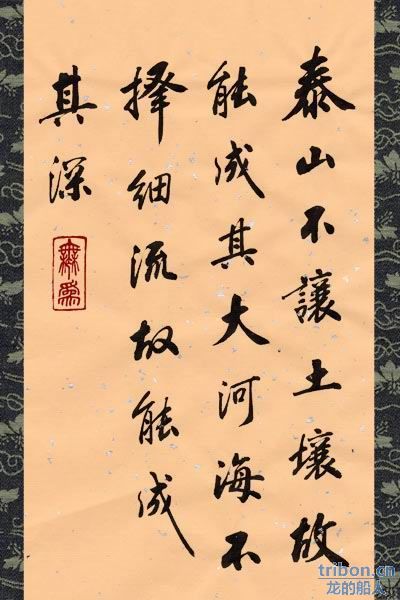 泰山不讓土壤故
能成其大河海不
擇細流故能成
其深
tribon.cn
龙的船人